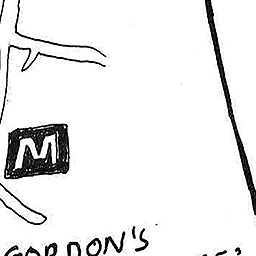 M
GORDON'S